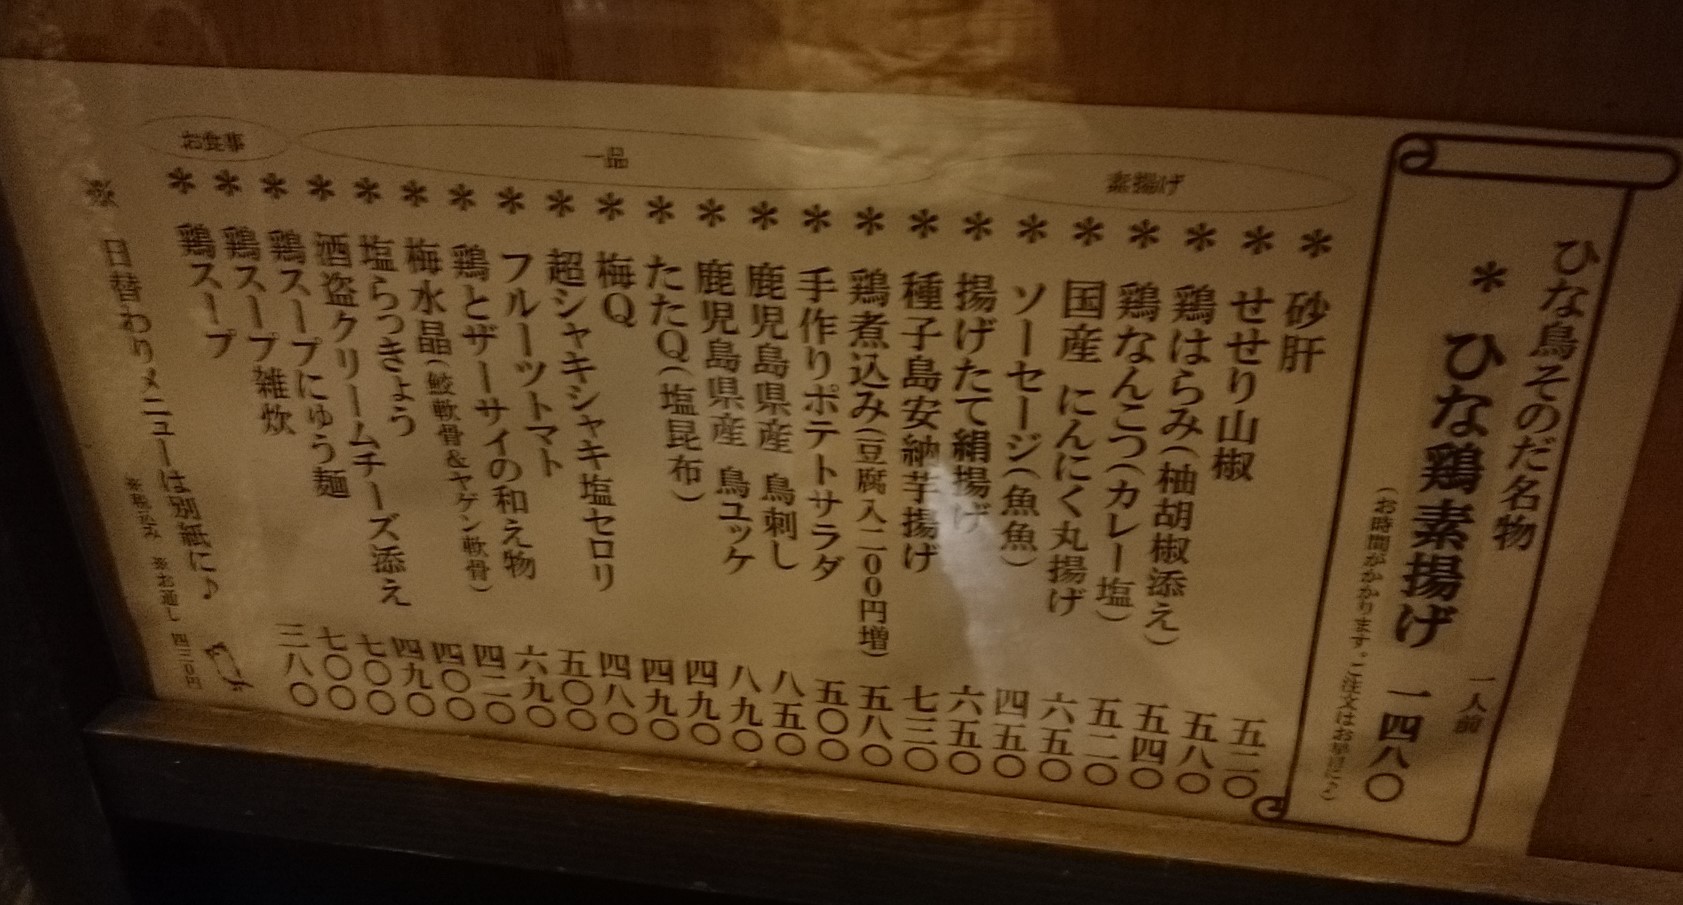 ひな鳥そのだ名物
＊ ひな鶏素揚げ 一人前 一四八〇
（お時間がかかります。ご注文はお早目に♪）
素揚げ
＊ 砂肝 五二〇
＊ せせり山椒 五八〇
＊ 鶏はらみ（柚胡椒添え） 五四〇
＊ 鶏なんこつ（カレー塩） 五二〇
＊ 国産 にんにく丸揚げ 六五〇
＊ ソーセージ（魚魚） 四五〇
＊ 揚げたて絹揚げ 六五〇
＊ 種子島安納芋揚げ 七三〇
一品
＊ 鶏煮込み（豆腐入二００円増） 五八〇
＊ 手作りポテトサラダ 五〇〇
＊ 鹿児島県産 鳥刺し 八五〇
＊ 鹿児島県産 鳥ユッケ 八九〇
＊ たたQ（塩昆布） 四九〇
＊ 梅Q 四九〇
＊ 超シャキシャキ塩セロリ 四八〇
＊ フルーツトマト 五〇〇
＊ 鶏とザーサイの和え物 六九〇
＊ 梅水晶（鮫軟骨＆ヤゲン軟骨） 四二〇
＊ 塩らっきょう 四〇〇
＊ 酒盗クリームチーズ添え 四九〇
お食事
＊ 鶏スープにゅう麺 七〇〇
＊ 鶏スープ雑炊 七〇〇
＊ 鶏スープ 三八〇
※ 日替わりメニューは別紙に♪
※税込み ※お通し 四三０円